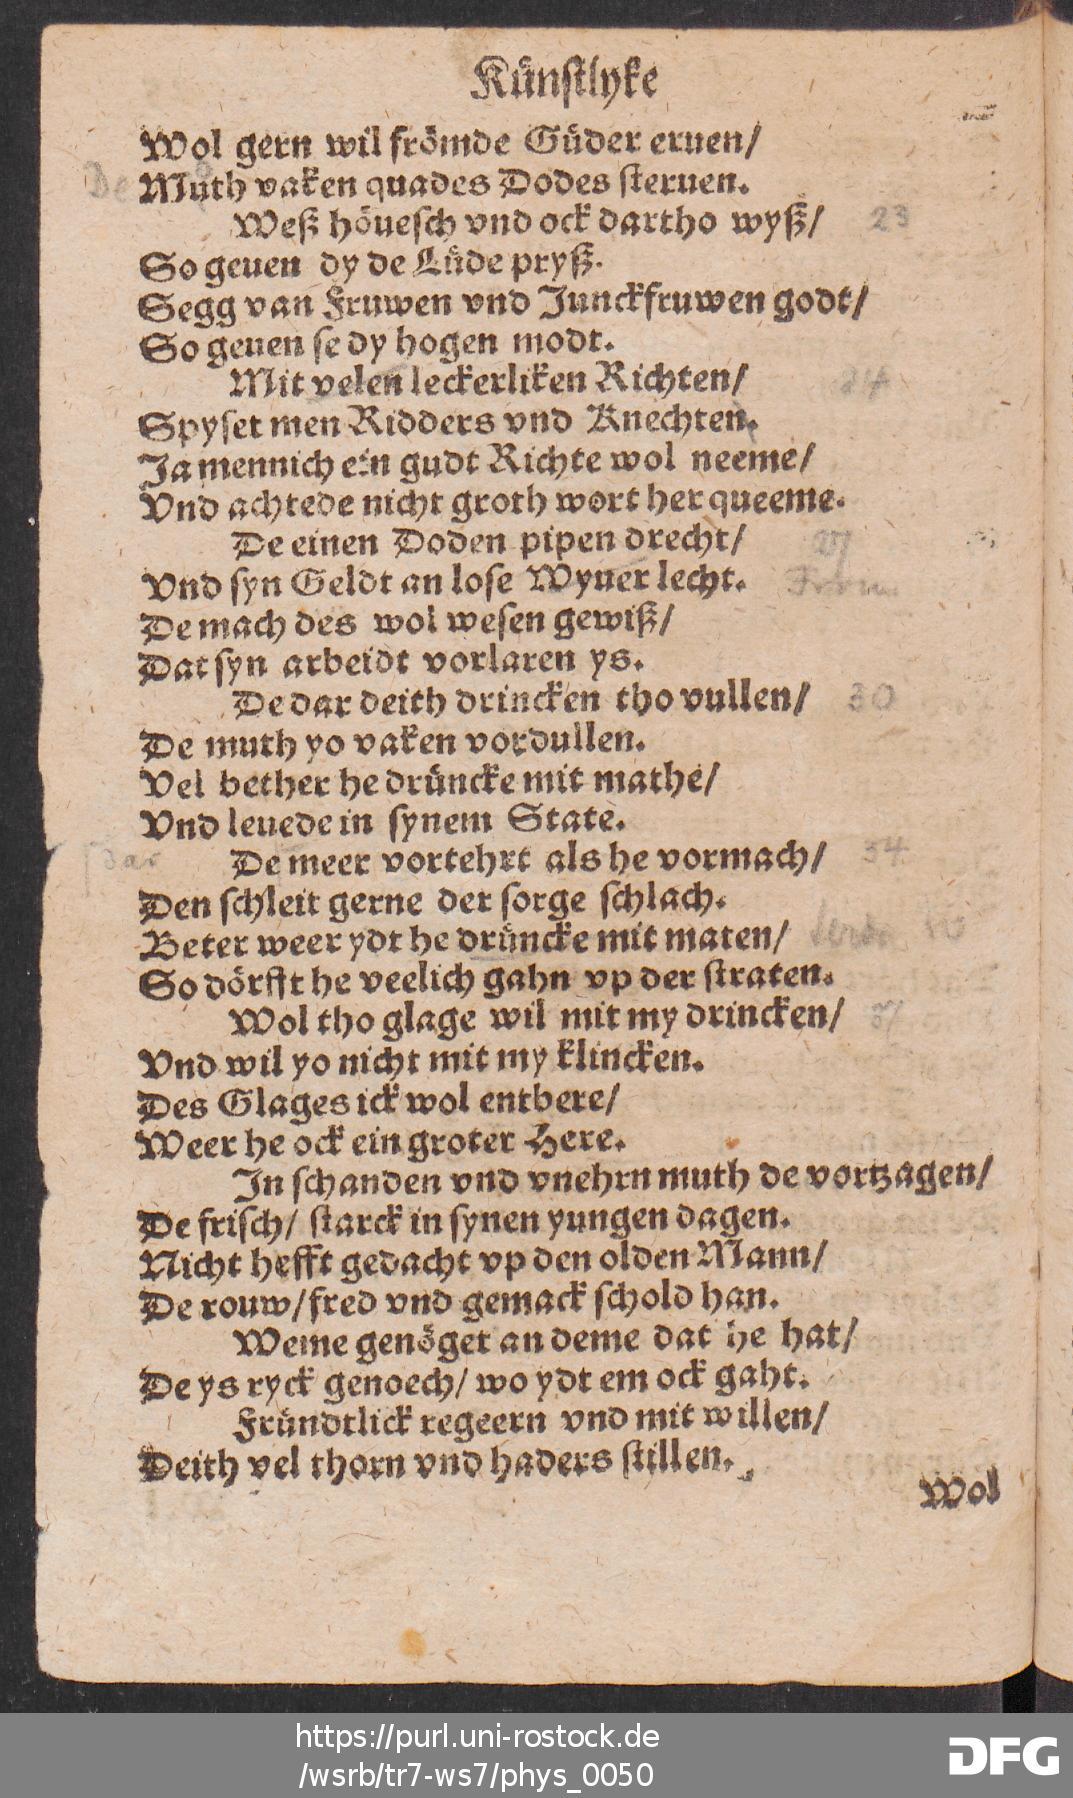 Künstlyke
Wol gern wil frömde Güder eruen/
Muth vaken quades Dodes steruen.
Weß höuesch vnd ock dartho wyß/ 23
So geuen dy de Lüde pryß.
Segg van Fruwen vnd Junckfruwen godt/
So geuen se dy hogen modt.
Mit velen leckerliken Richten/ 24
Spyset men Ridders vnd Knechten.
Ja mennich ein gudt Richte wol neeme/
Vnd achtede nicht groth wort her queeme.
De einen Doden pipen drecht/ 27
Vnd syn Geldt an lose Wyuer lecht.
De mach des wol wesen gewiß/
Dat syn arbeidt vorlaren ys.
De dar deith drincken tho vullen/ 30
De muth yo vaken vordullen.
Vel bether he drüncke mit mathe/
Vnd leuede in synem State.
De meer vortehrt als he vormach/ 34
Den schleit gerne der sorge schlach.
Beter weer ydt he drüncke mit maten/
So dörfft he veelich gahn vp der straten.
Wol tho glage wil mit my drincken/
Vnd wil yo nicht mit my klincken.
Des Glages ick wol entbere/
Weer he ock ein groter Here.
In schanden vnd vnehrn muth de vortzagen/
De frisch/ starck in synen yungen dagen.
Nicht hefft gedacht vp den olden Mann/
De rouw/ fred vnd gemack schold han.
Weme genöget an deme dat he hat/
De ys ryck genoech/ wo ydt em ock gaht.
Fründtlick regeern vnd mit willen/
Deith vel thorn vnd haders stillen.
Wol
https://purl.uni-rostock.de
/wsrb/tr7-ws7/phys_0050
DFG